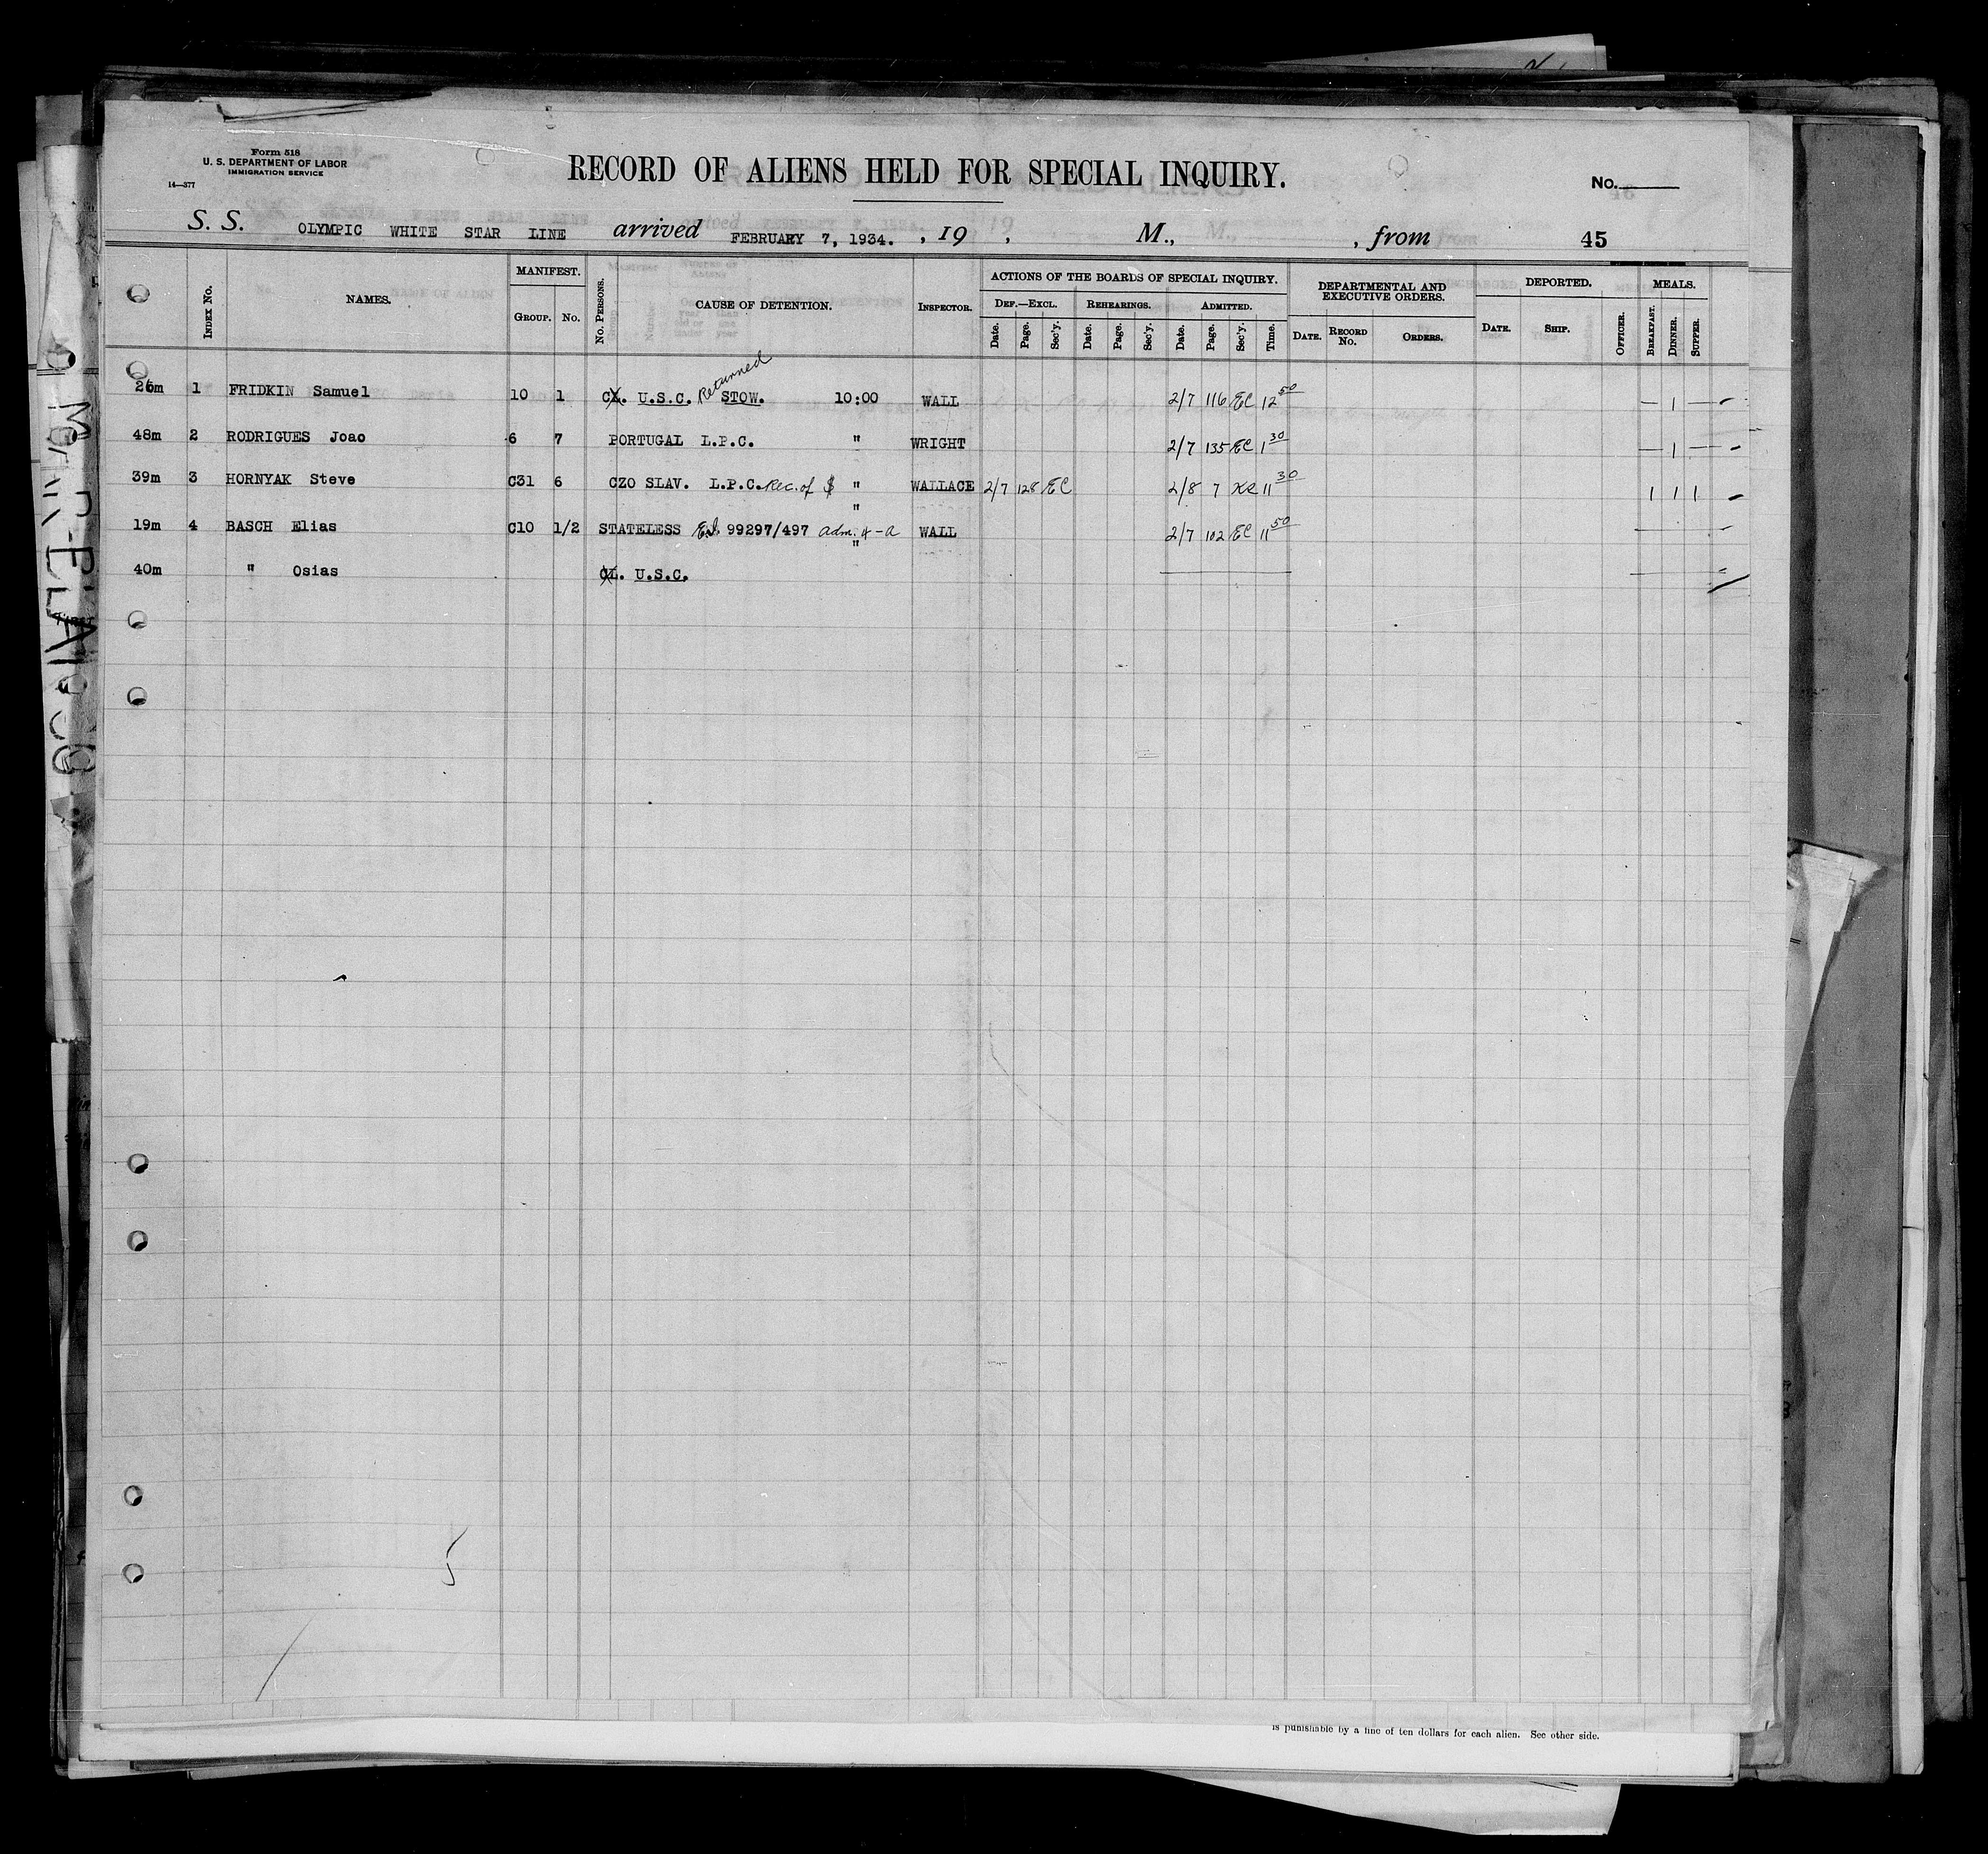 Form 518
U. S. DEPARTMENT OF LABOR
IMMIGRATION SERVICE
14—377
RECORD OF ALIENS HELD FOR SPECIAL INQUIRY.
No.
S. S. OLYMPIC WHITE STAR LINE arrived FEBRUARY 7, 1934. , 19 , M., , from 45
INDEX No. NAMES. MANIFEST. GROUP. No. No. PERSONS. CAUSE OF DETENTION. INSPECTOR. ACTIONS OF THE BOARDS OF SPECIAL INQUIRY. DEF.—EXCL. Date. Page. Sec'y. REHEARINGS. Date. Page. Sec'y. ADMITTED. Date. Page. Sec'y. Time. DEPARTMENTAL AND EXECUTIVE ORDERS. DATE. RECORD No. ORDERS. DEPORTED. DATE. SHIP. OFFICER. MEALS. BREAKFAST. DINNER. SUPPER.
26m 1 FRIDKIN Samuel 10 1 U.S.C. Returned STOW. 10:00 WALL 2/7 116 EC 12 50 — 1 —
48m 2 RODRIGUES Joao 6 7 PORTUGAL L.P.C. " WRIGHT 2/7 135 EC 1 30 — 1 —
39m 3 HORNYAK Steve C31 6 CZO SLAV. L.P.C. Rec. of $ " WALLACE 2/7 128 EC 2/8 7 11 30 1 1 1
19m 4 BASCH Elias C10 1/2 STATELESS 99297/497 adm. 4-a " WALL 2/7 102 EC 11 50
40m " Osias " U.S.C.
5
is punishable by a fine of ten dollars for each alien. See other side.